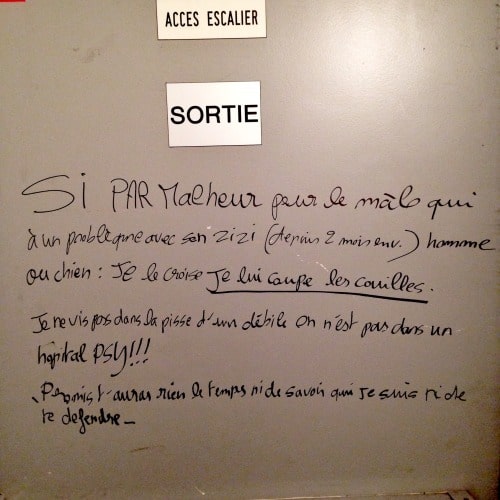 ACCES ESCALIER
SORTIE
Si PAR Malheur pour le mâle qui
à un problème avec son zizi (depuis 2 mois env.) homme
ou chien : Je le croise Je lui coupe les couilles.
Je ne vis pas dans la pisse d'un débile On n'est pas dans un
hopital PSY!!!
Promis t'auras rien le temps ni de savoir qui je suis ni de
te defendre_